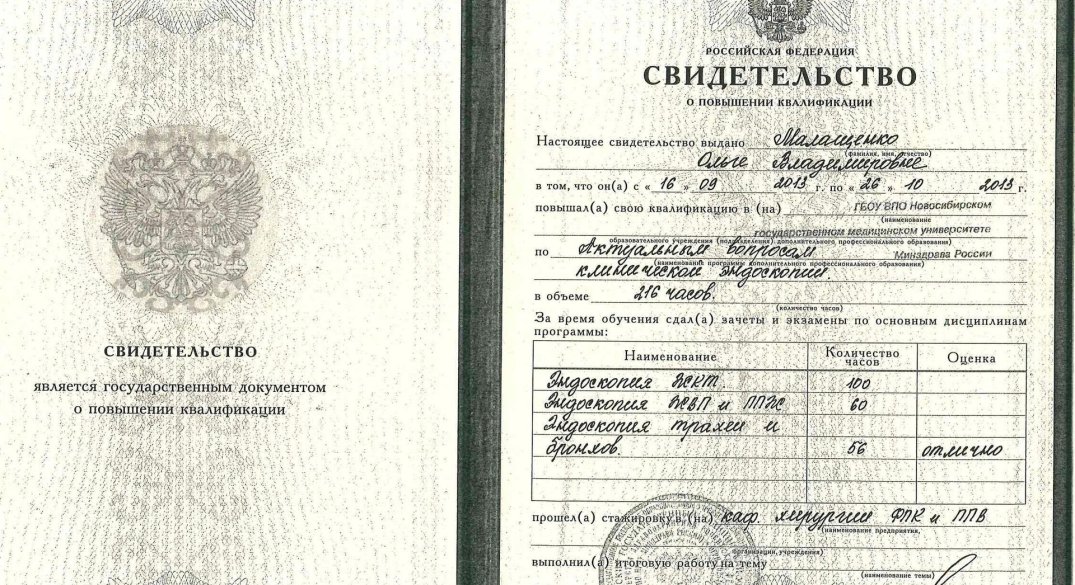 СВИДЕТЕЛЬСТВО
является государственным документом
о повышении квалификации
РОССИЙСКАЯ ФЕДЕРАЦИЯ
СВИДЕТЕЛЬСТВО
О ПОВЫШЕНИИ КВАЛИФИКАЦИИ
Настоящее свидетельство выдано Малащенко
(фамилия, имя, отчество)
Ольге Владимировне
в том, что он(а) с « 16 » 09 2013 г. по « 26 » 10 2013 г.
повышал(а) свою квалификацию в (на) ГБОУ ВПО Новосибирском
(наименование
государственном медицинском университете
образовательного учреждения (подразделения) дополнительного профессионального образования)
по Актуальным вопросам Минздрава России
(наименование программы дополнительного профессионального образования)
клинической эндоскопии.
в объеме 216 часов.
(количество часов)
За время обучения сдал(а) зачеты и экзамены по основным дисциплинам
программы:
Наименование Количество часов Оценка
Эндоскопия ВСКТ 100
Эндоскопия и 60
Эндоскопия трахеи и
бронхов. 56 отлично
прошел(а) стажировку в (на) каф. хирургии ФПК и ППВ
(наименование предприятия,
организации, учреждения)
выполнил(а) итоговую работу на тему
(наименование темы)